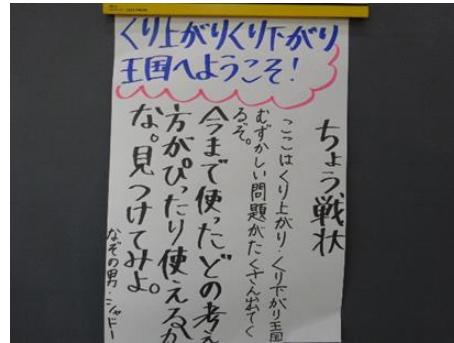 くり上がりくり下がり
王国へようこそ!
ちょう戦状
ここはくり上がり・くり下がり王国
むずかしい問題がたくさん出てく
るぞ。
今まで使ったどの考え
方がぴったり使えるか
な。見つけてみよ。
なぞの男・シャドー